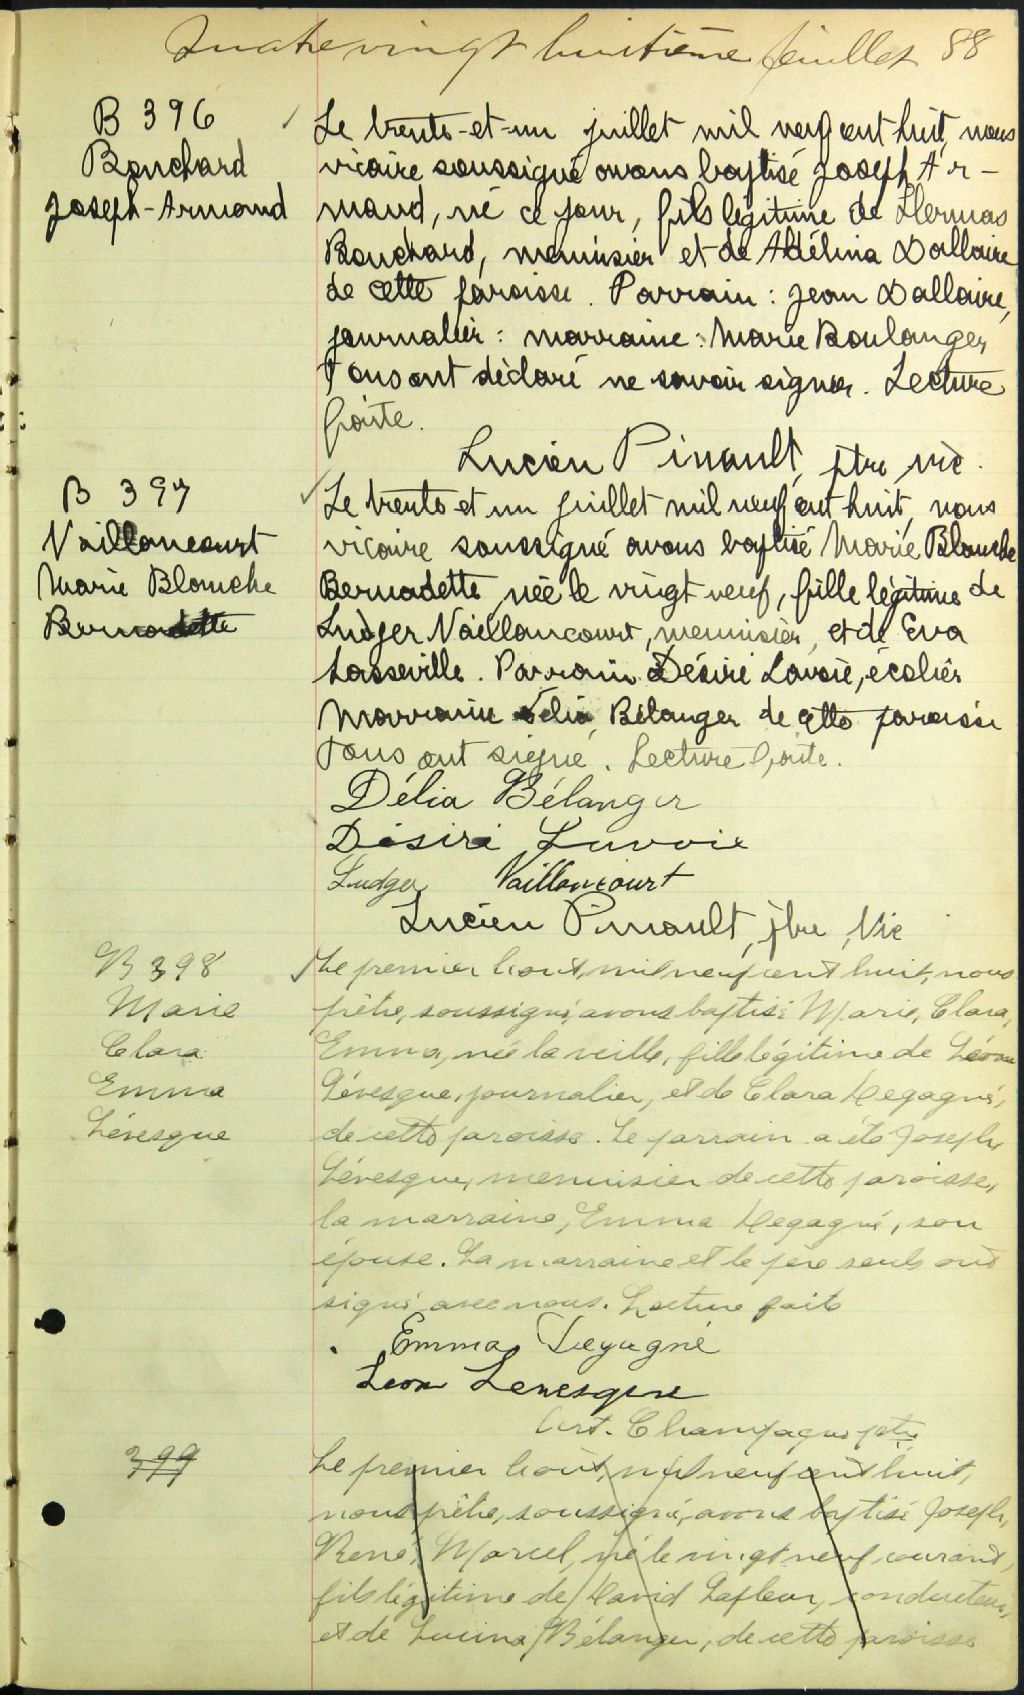 Quatrevingt huitième feuillet 88
B 396
Bouchard
Joseph-Armand
Le trente-et-un juillet mil neuf cent huit, nous
vicaire soussigné avons baptisé Joseph Ar-
mand, né ce jour, fils légitime de Hermas
Bouchard, menuisier et de Adélina Dallaire
de cette paroisse. Parrain: Jean Dallaire,
journalier: marraine: Marie Boulanger
Tous ont déclaré ne savoir signer. Lecture
faite.
Lucien Pinault, ptre vic.
B 397
Vaillancourt
Marie Blanche
Bernadette
Le trente et un juillet mil neuf cent huit, nous
vicaire soussigné avons baptisé Marie Blanche
Bernadette, née le vingt neuf, fille légitime de
Ludger Vaillancourt, menuisier, et de Eva
Lasseville. Parrain Désiré Lavoie, écolier
Marraine Délia Bélanger de cette paroisse
Tous ont signé. Lecture faite.
Délia Bélanger
Désiré Lavoie
Ludger Vaillancourt
Lucien Pinault, ptre, Vic
B 398
Marie
Clara
Emma
Lévesque
Le premier août, mil neuf cent huit, nous
prêtre, soussigné, avons baptisé Marie, Clara,
Emma, née la veille, fille légitime de Léon
Lévesque, journalier, et de Clara Degagné,
de cette paroisse. Le parrain a été Joseph
Lévesque, menuisier de cette paroisse,
la marraine, Emma Degagné, son
épouse. La marraine et le père seuls ont
signé avec nous. Lecture faite
Emma Degagné
Leon Levesque
Champagne ptre
399
Le premier août, mil neuf cent huit,
nous prêtre, soussigné, avons baptisé Joseph,
René, Marcel, né le vingt neuf courant,
fils légitime de David Lafleur, conducteur,
et de Lucina Bélanger, de cette paroisse